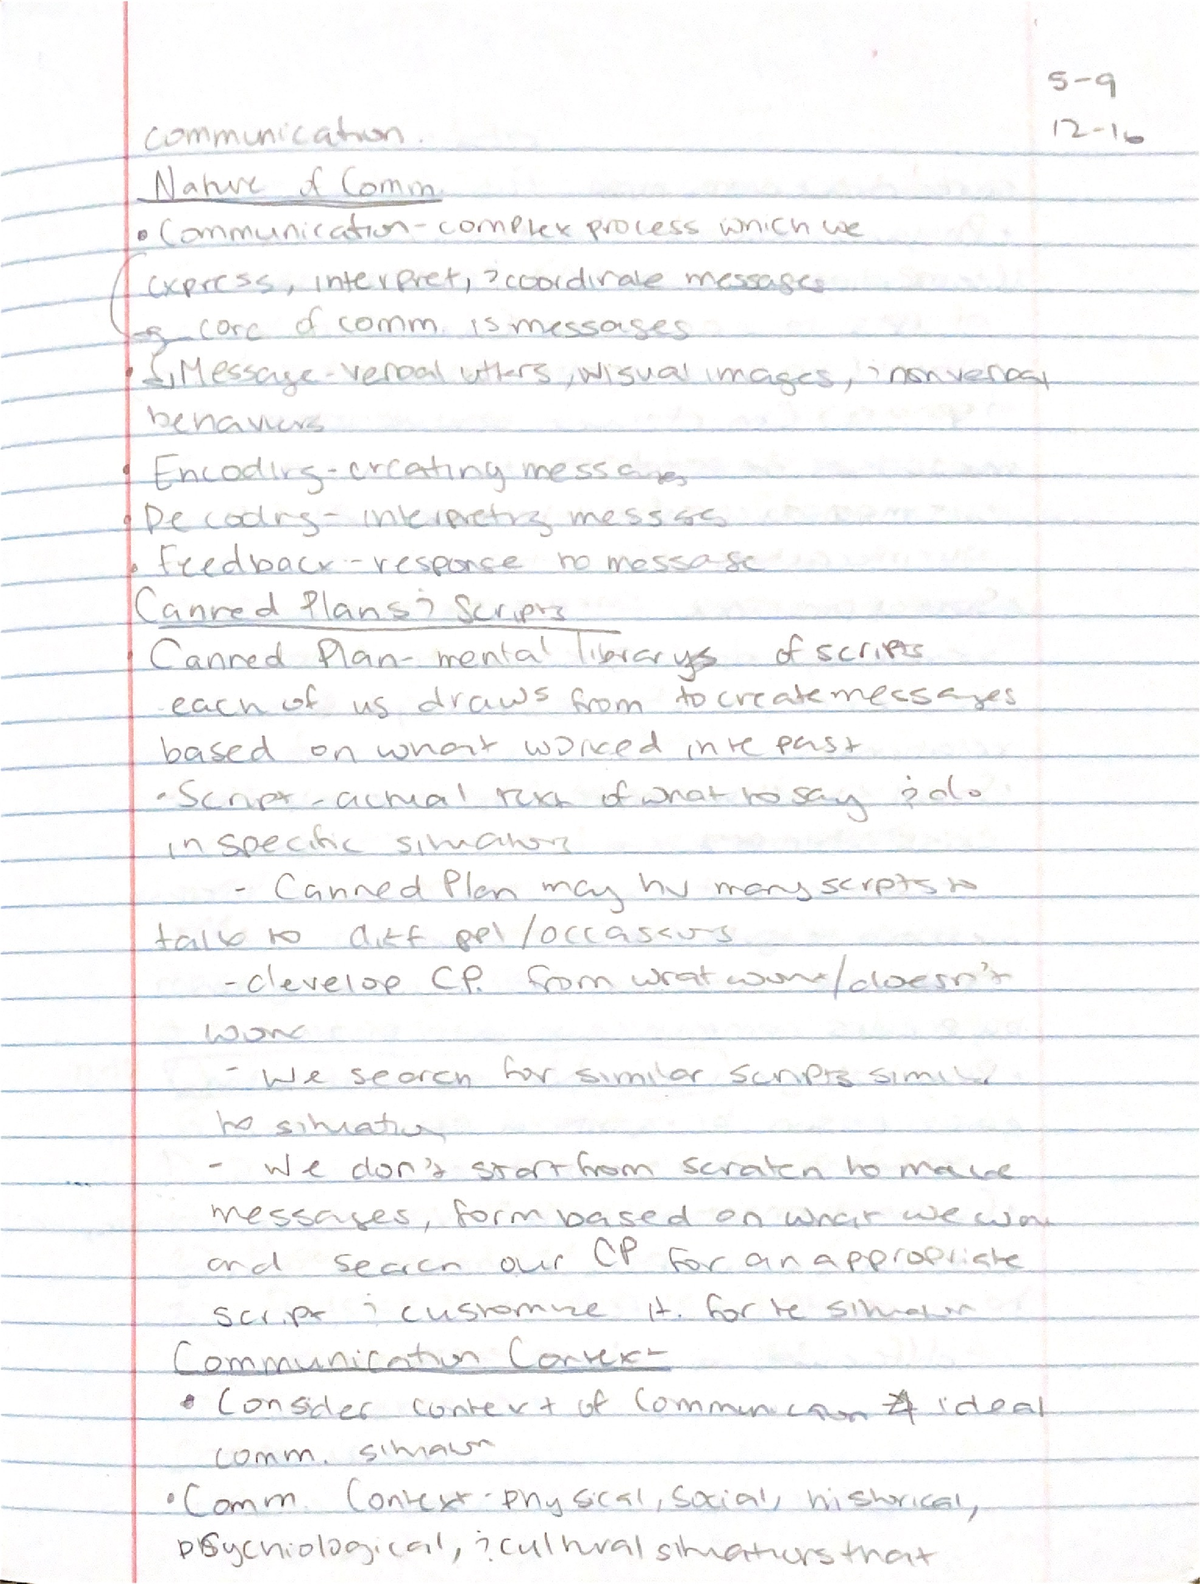 5-9
12-16
Communication.
Nature of Comm.
• Communication - complex process which we
express, interpret, & coordinate messages
↳ core of comm. is messages
• ↳ Message - verbal utters, visual images, & nonverbal
behaviors
• Encoding - creating messages
• Decoding - interpreting messages
• Feedback - response to message
Canned Plans & Scripts
• Canned Plan - mental library of scripts
each of us draws from to create messages
based on what worked in te past
• Script - actual text of what to say & do
in specific situations
- Canned Plan may hv many scripts to
talk to diff ppl/occassions
- develop CP. from what work/doesn't
work
- We search for similar scripts simil
to situation
- We don't start from scratch to make
messages, form based on what we
and search our CP for an appropriate
script & customize it. for te situation
Communication Context
• Consider context of Communication ideal
comm. situation
• Comm. Context - physical, social, historical,
psychiological, & cultural situations that